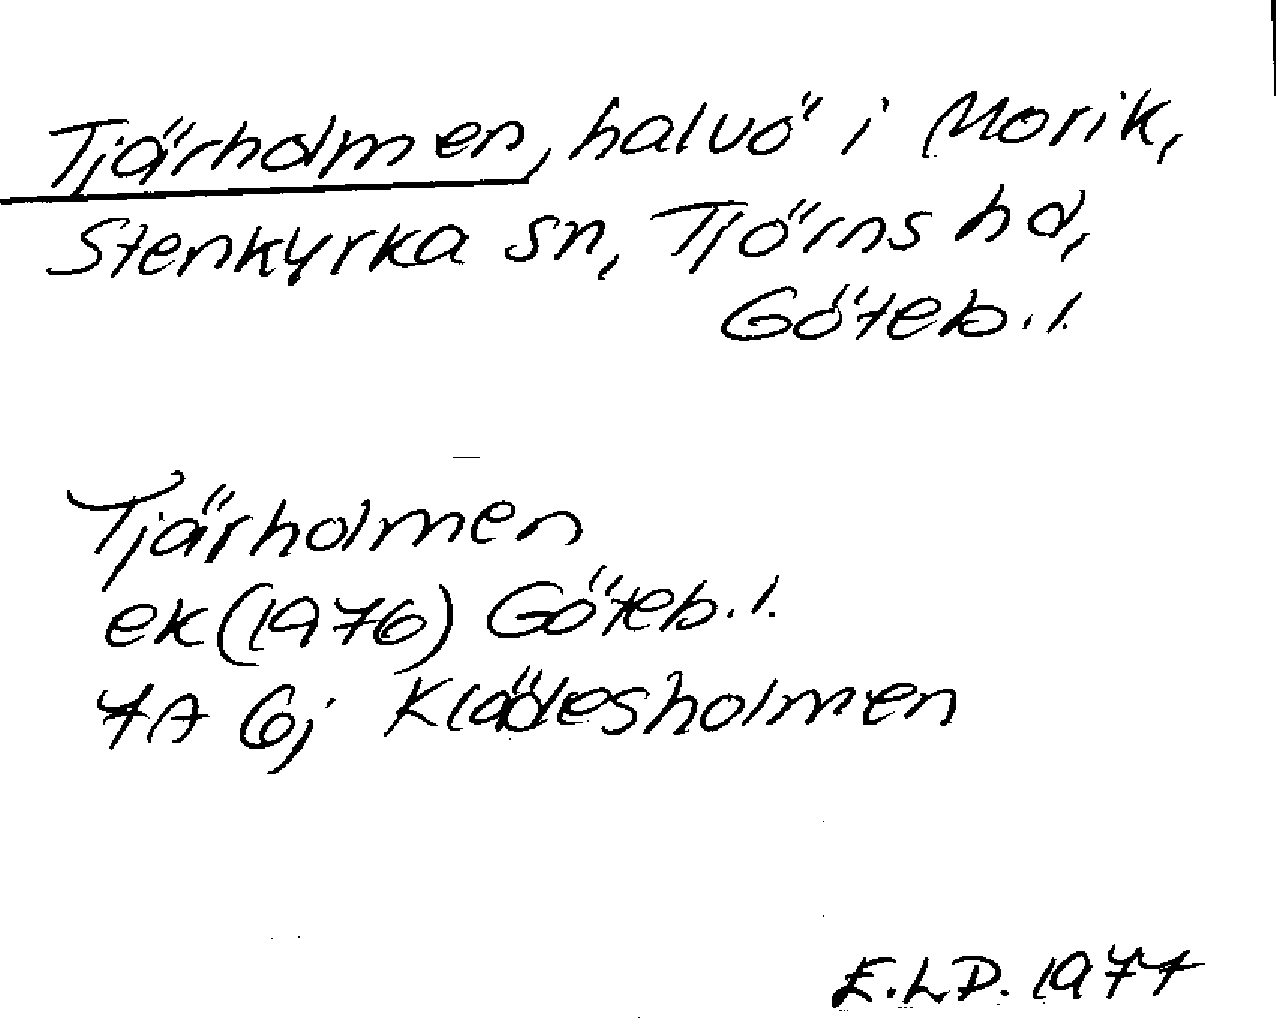 Tjärholmen, halvö i Morik,
Stenkyrka sn, Tjörns hd,
Göteb. l.
Tjärholmen
ek (1976) Göteb. l.
7A 6j Klädesholmen
E.L.D. 1977